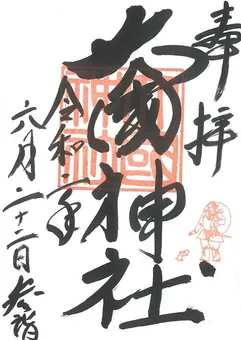 奉拝
大國神社
令和二年
六月二十二日参拝